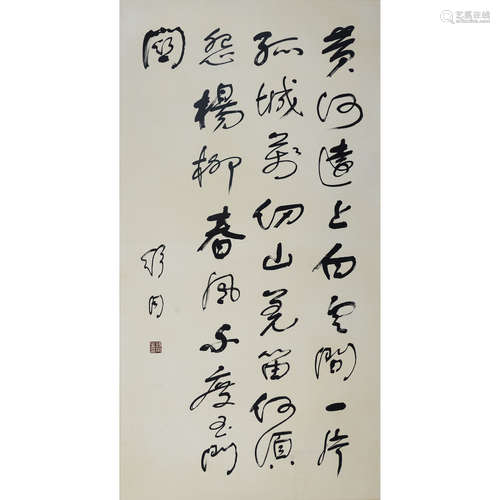 黄河遠上白雲間一片
孤城萬仞山羌笛何須
怨楊柳春風不度玉門
關
舒同
艺狐在线